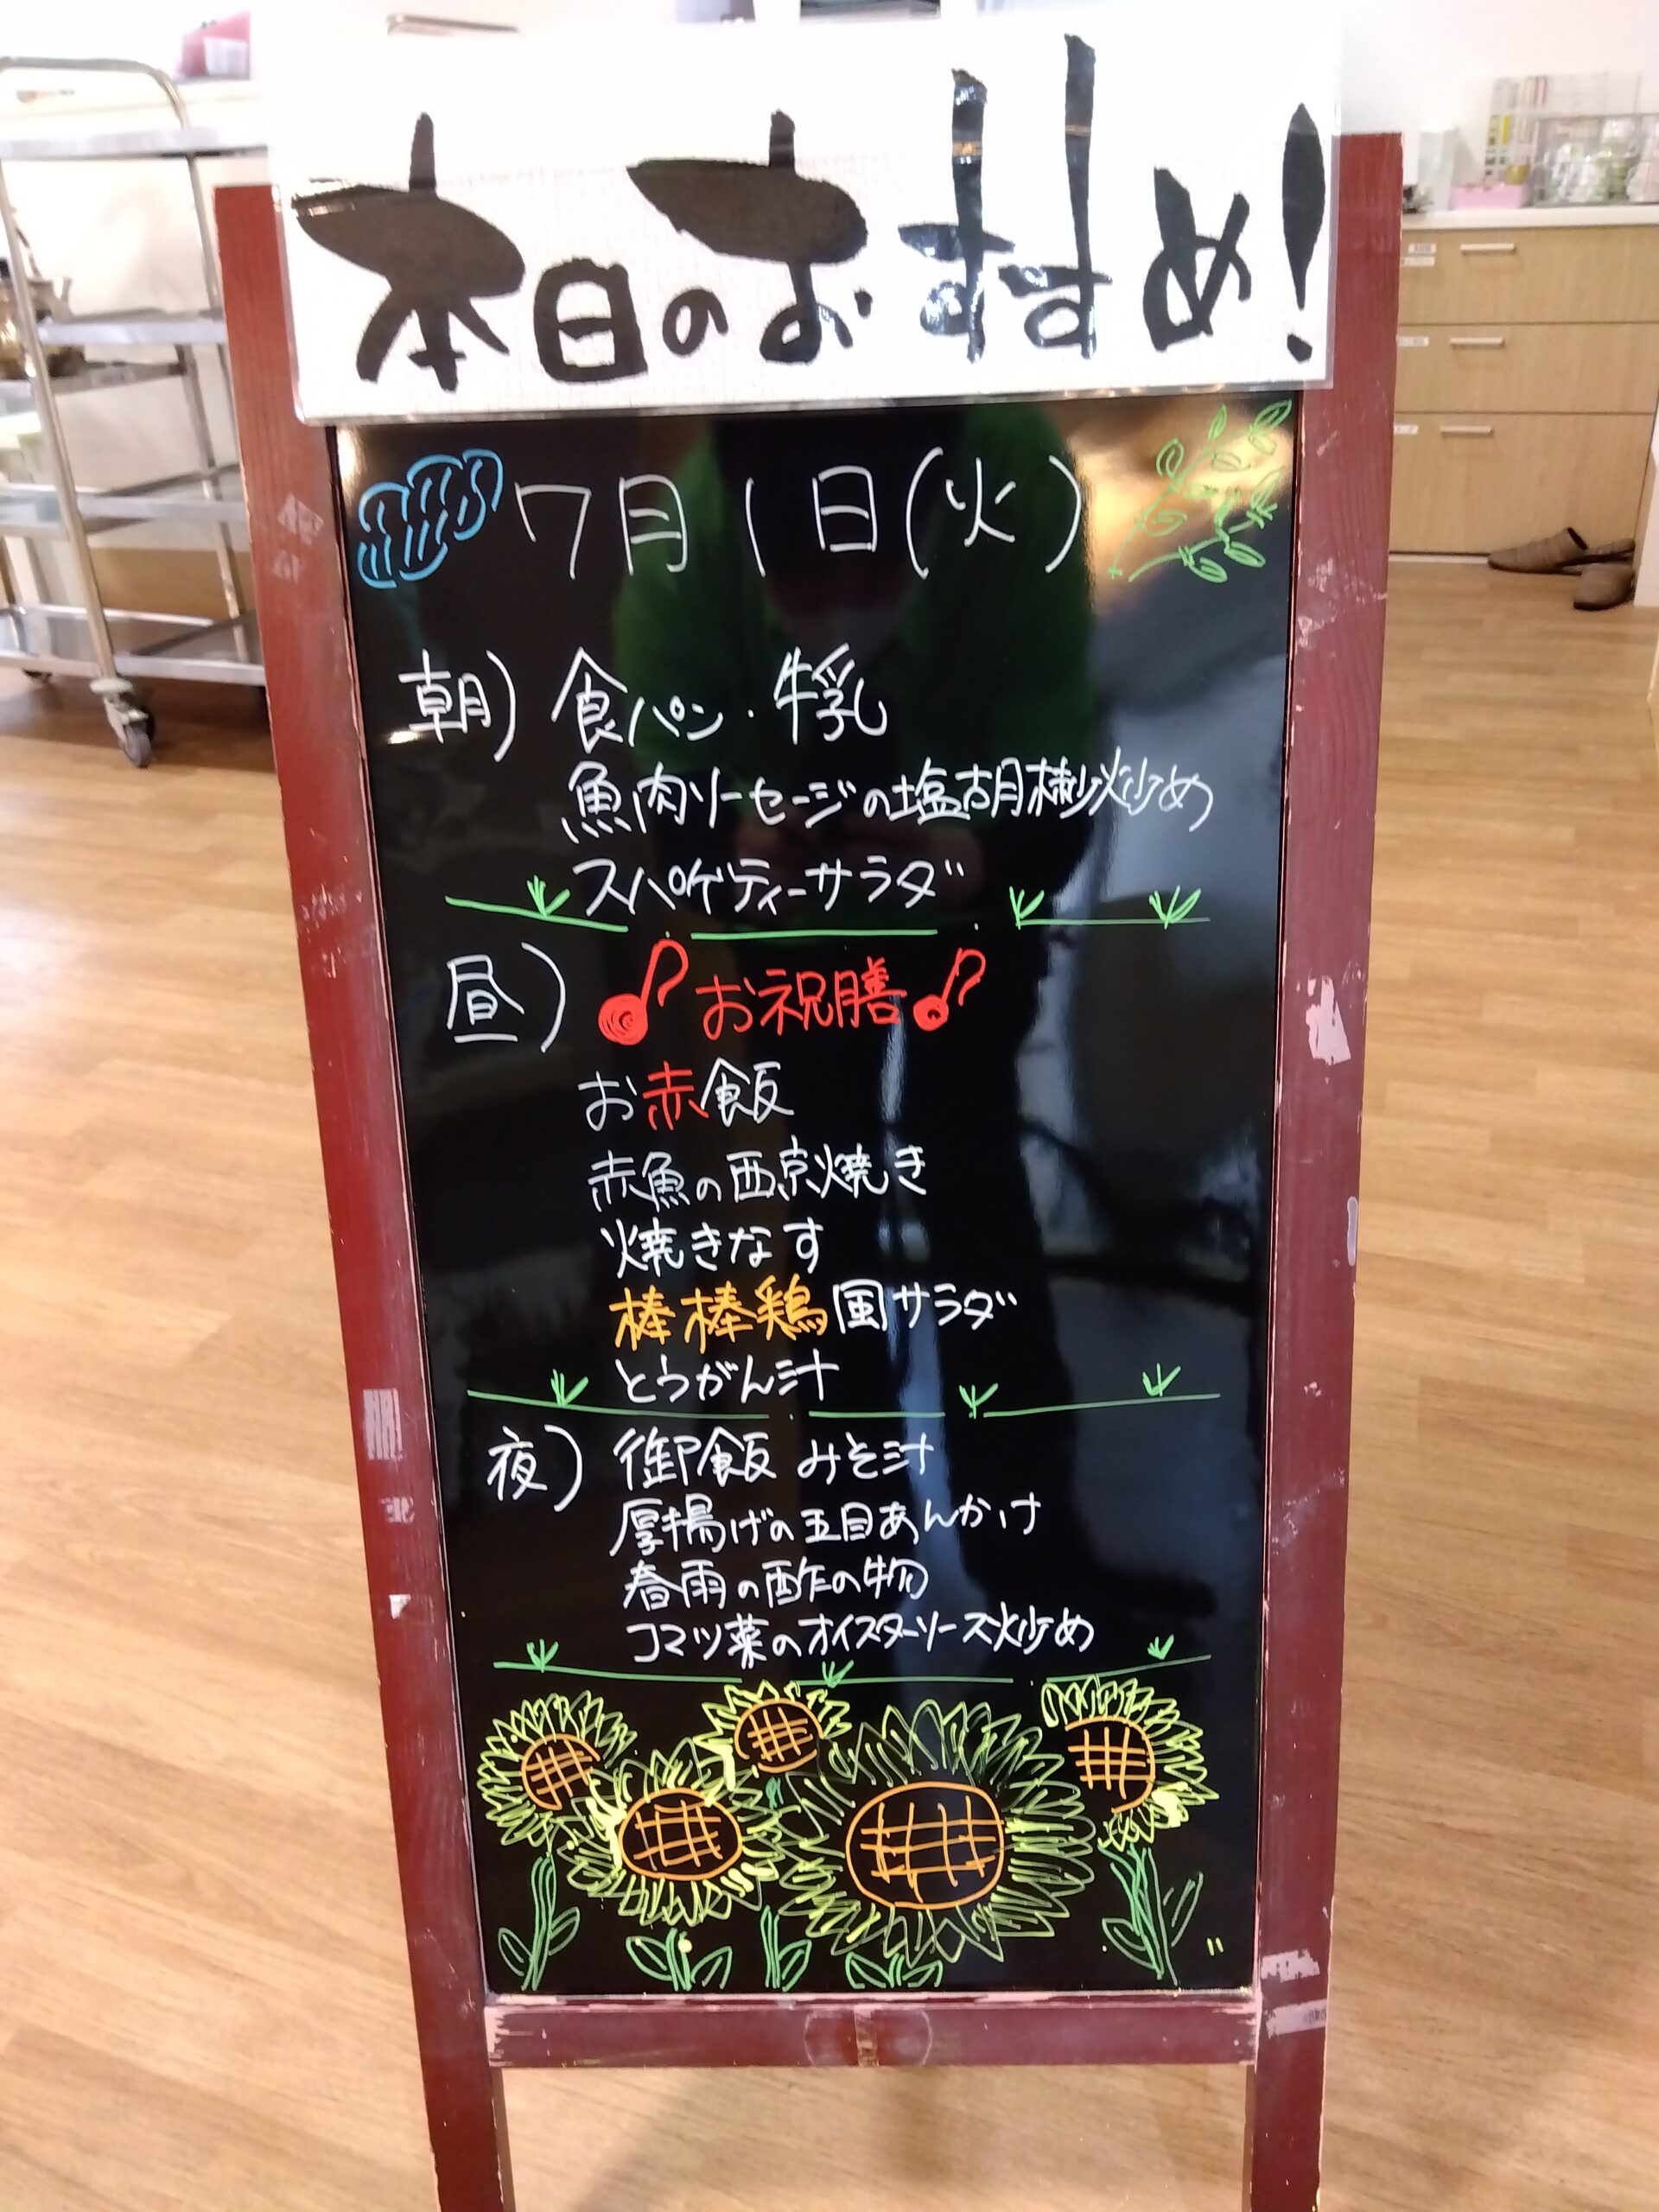 本日のおすすめ!
7月1日(火)
朝) 食パン・牛乳
魚肉ソーセージの塩胡椒炒め
スパゲティーサラダ
昼) ♪お祝膳♪
お赤飯
赤魚の西京焼き
焼きなす
棒棒鶏風サラダ
とうがん汁
夜) 御飯 みそ汁
厚揚げの五目あんかけ
春雨の酢の物
コマツ菜のオイスターソース炒め